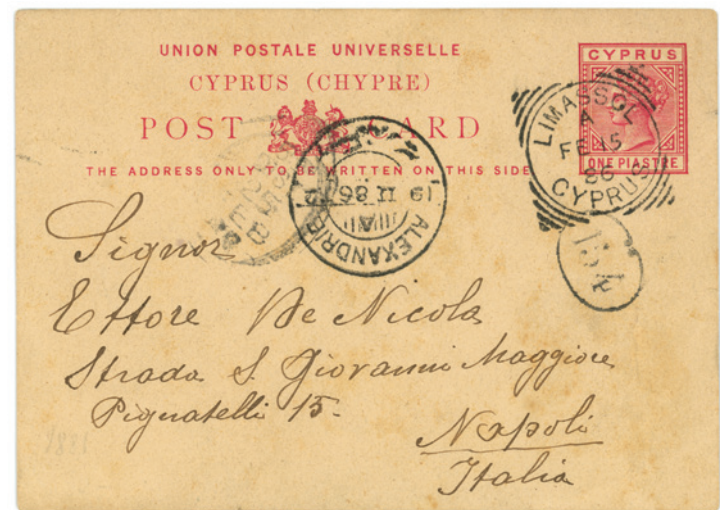 UNION POSTALE UNIVERSELLE
CYPRUS (CHYPRE)
POST CARD
THE ADDRESS ONLY TO BE WRITTEN ON THIS SIDE
CYPRUS
ONE PIASTRE
LIMASSOL
A
FE 15
86
CYPRUS
ALEXANDRIE
19 II 86
Signor
Ettore De Nicola
Strada S. Giovanni Maggiore
Pignatelli 15.
Napoli
Italia